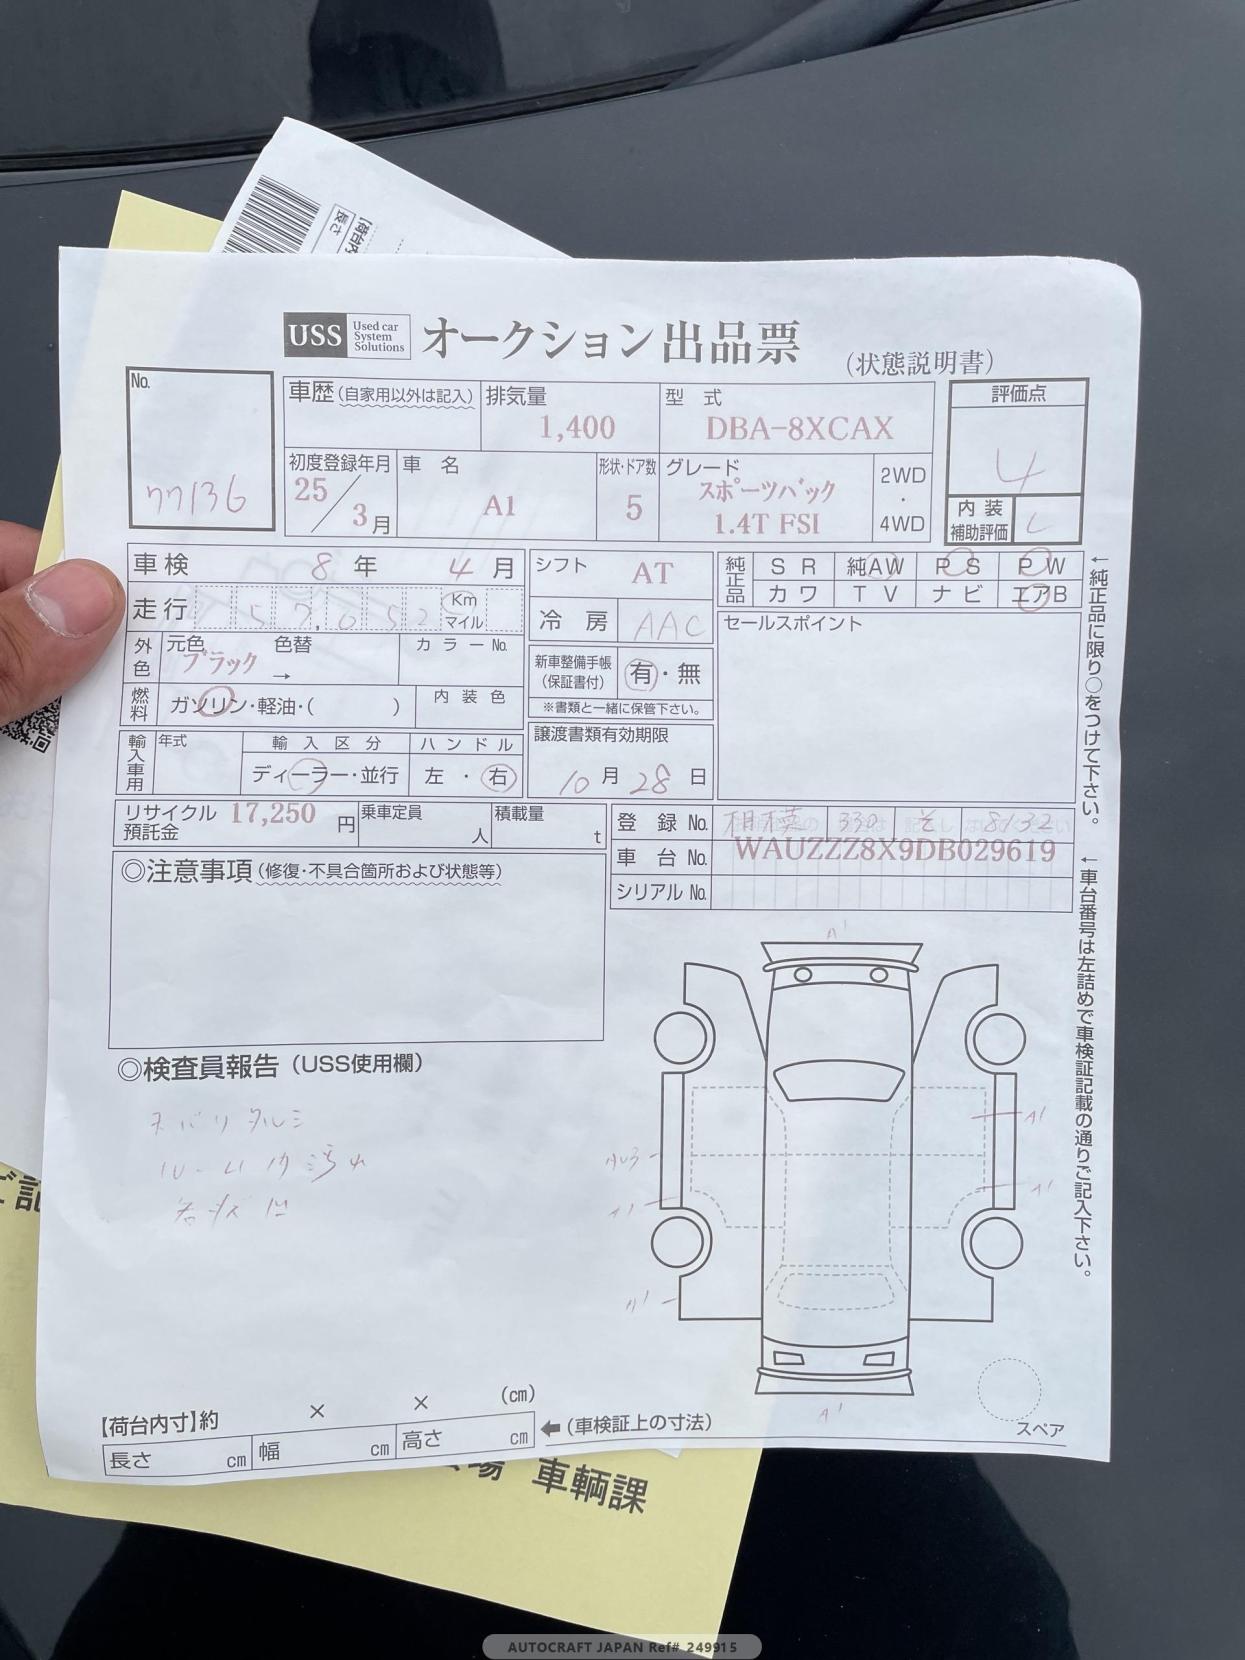 【荷台内
長さ
USS Used car System Solutions オークション出品票 (状態説明書)
No.
77136
車歴(自家用以外は記入)
排気量
1,400
型 式
DBA-8XCAX
評価点
4
初度登録年月
25/3月
車 名
A1
形状・ドア数
5
グレード
スポーツバック
1.4T FSI
2WD
・
4WD
内装
補助評価
C
車検 8年 4月
走行 57,052 Km マイル
外色
元色 色替
ブラック →
カラーNo.
燃料
ガソリン・軽油・( )
内装色
輸入車用
年式
輸入区分
ディーラー・並行
ハンドル
左・右
シフト AT
冷房 AAC
新車整備手帳
(保証書付)
有・無
※書類と一緒に保管下さい。
譲渡書類有効期限
10月28日
純正品
SR 純AW PS PW
カワ TV ナビ エアB
セールスポイント
←純正品に限り○をつけて下さい。
リサイクル預託金 17,250円
乗車定員 人
積載量 t
登録No. 相模 330 そ 8132
車台No. WAUZZZ8X9DB029619
シリアルNo.
←車台番号は左詰めで車検証記載の通りご記入下さい。
◎注意事項(修復・不具合箇所および状態等)
◎検査員報告(USS使用欄)
ネバリタルミ
ルーム内汚れ
A'
A1
A1
A'
スペア
【荷台内寸】約 × × (cm)
長さ cm 幅 cm 高さ cm
←(車検証上の寸法)
車輌課
AUTOCRAFT JAPAN Ref# 249915